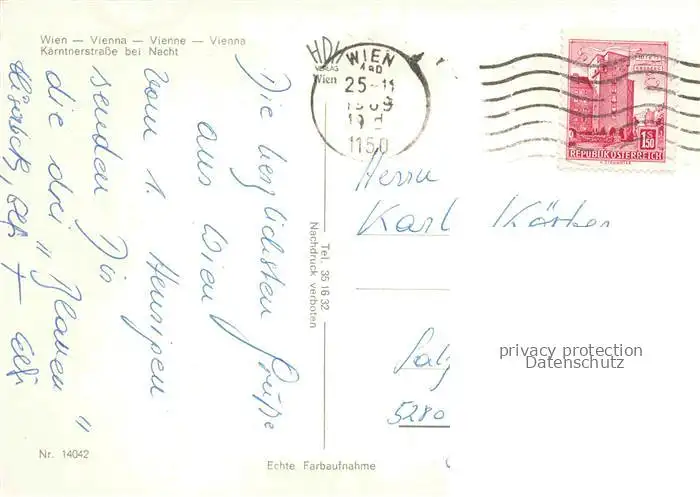 Wien — Vienna — Vienne — Vienna
Kärntnerstraße bei Nacht
Die herzlichsten Grüße
aus Wien
vom 1. Heurigen
senden Dir
die drei "Blauen"
+ Elfi
HDH
VERLAG
Wien
WIEN
25-11
1150
REPUBLIK ÖSTERREICH
S 1.50
Herrn
Karl Köster
5280
Tel. 35 16 32
Nachdruck verboten
privacy protection
Datenschutz
Nr. 14042
Echte Farbaufnahme